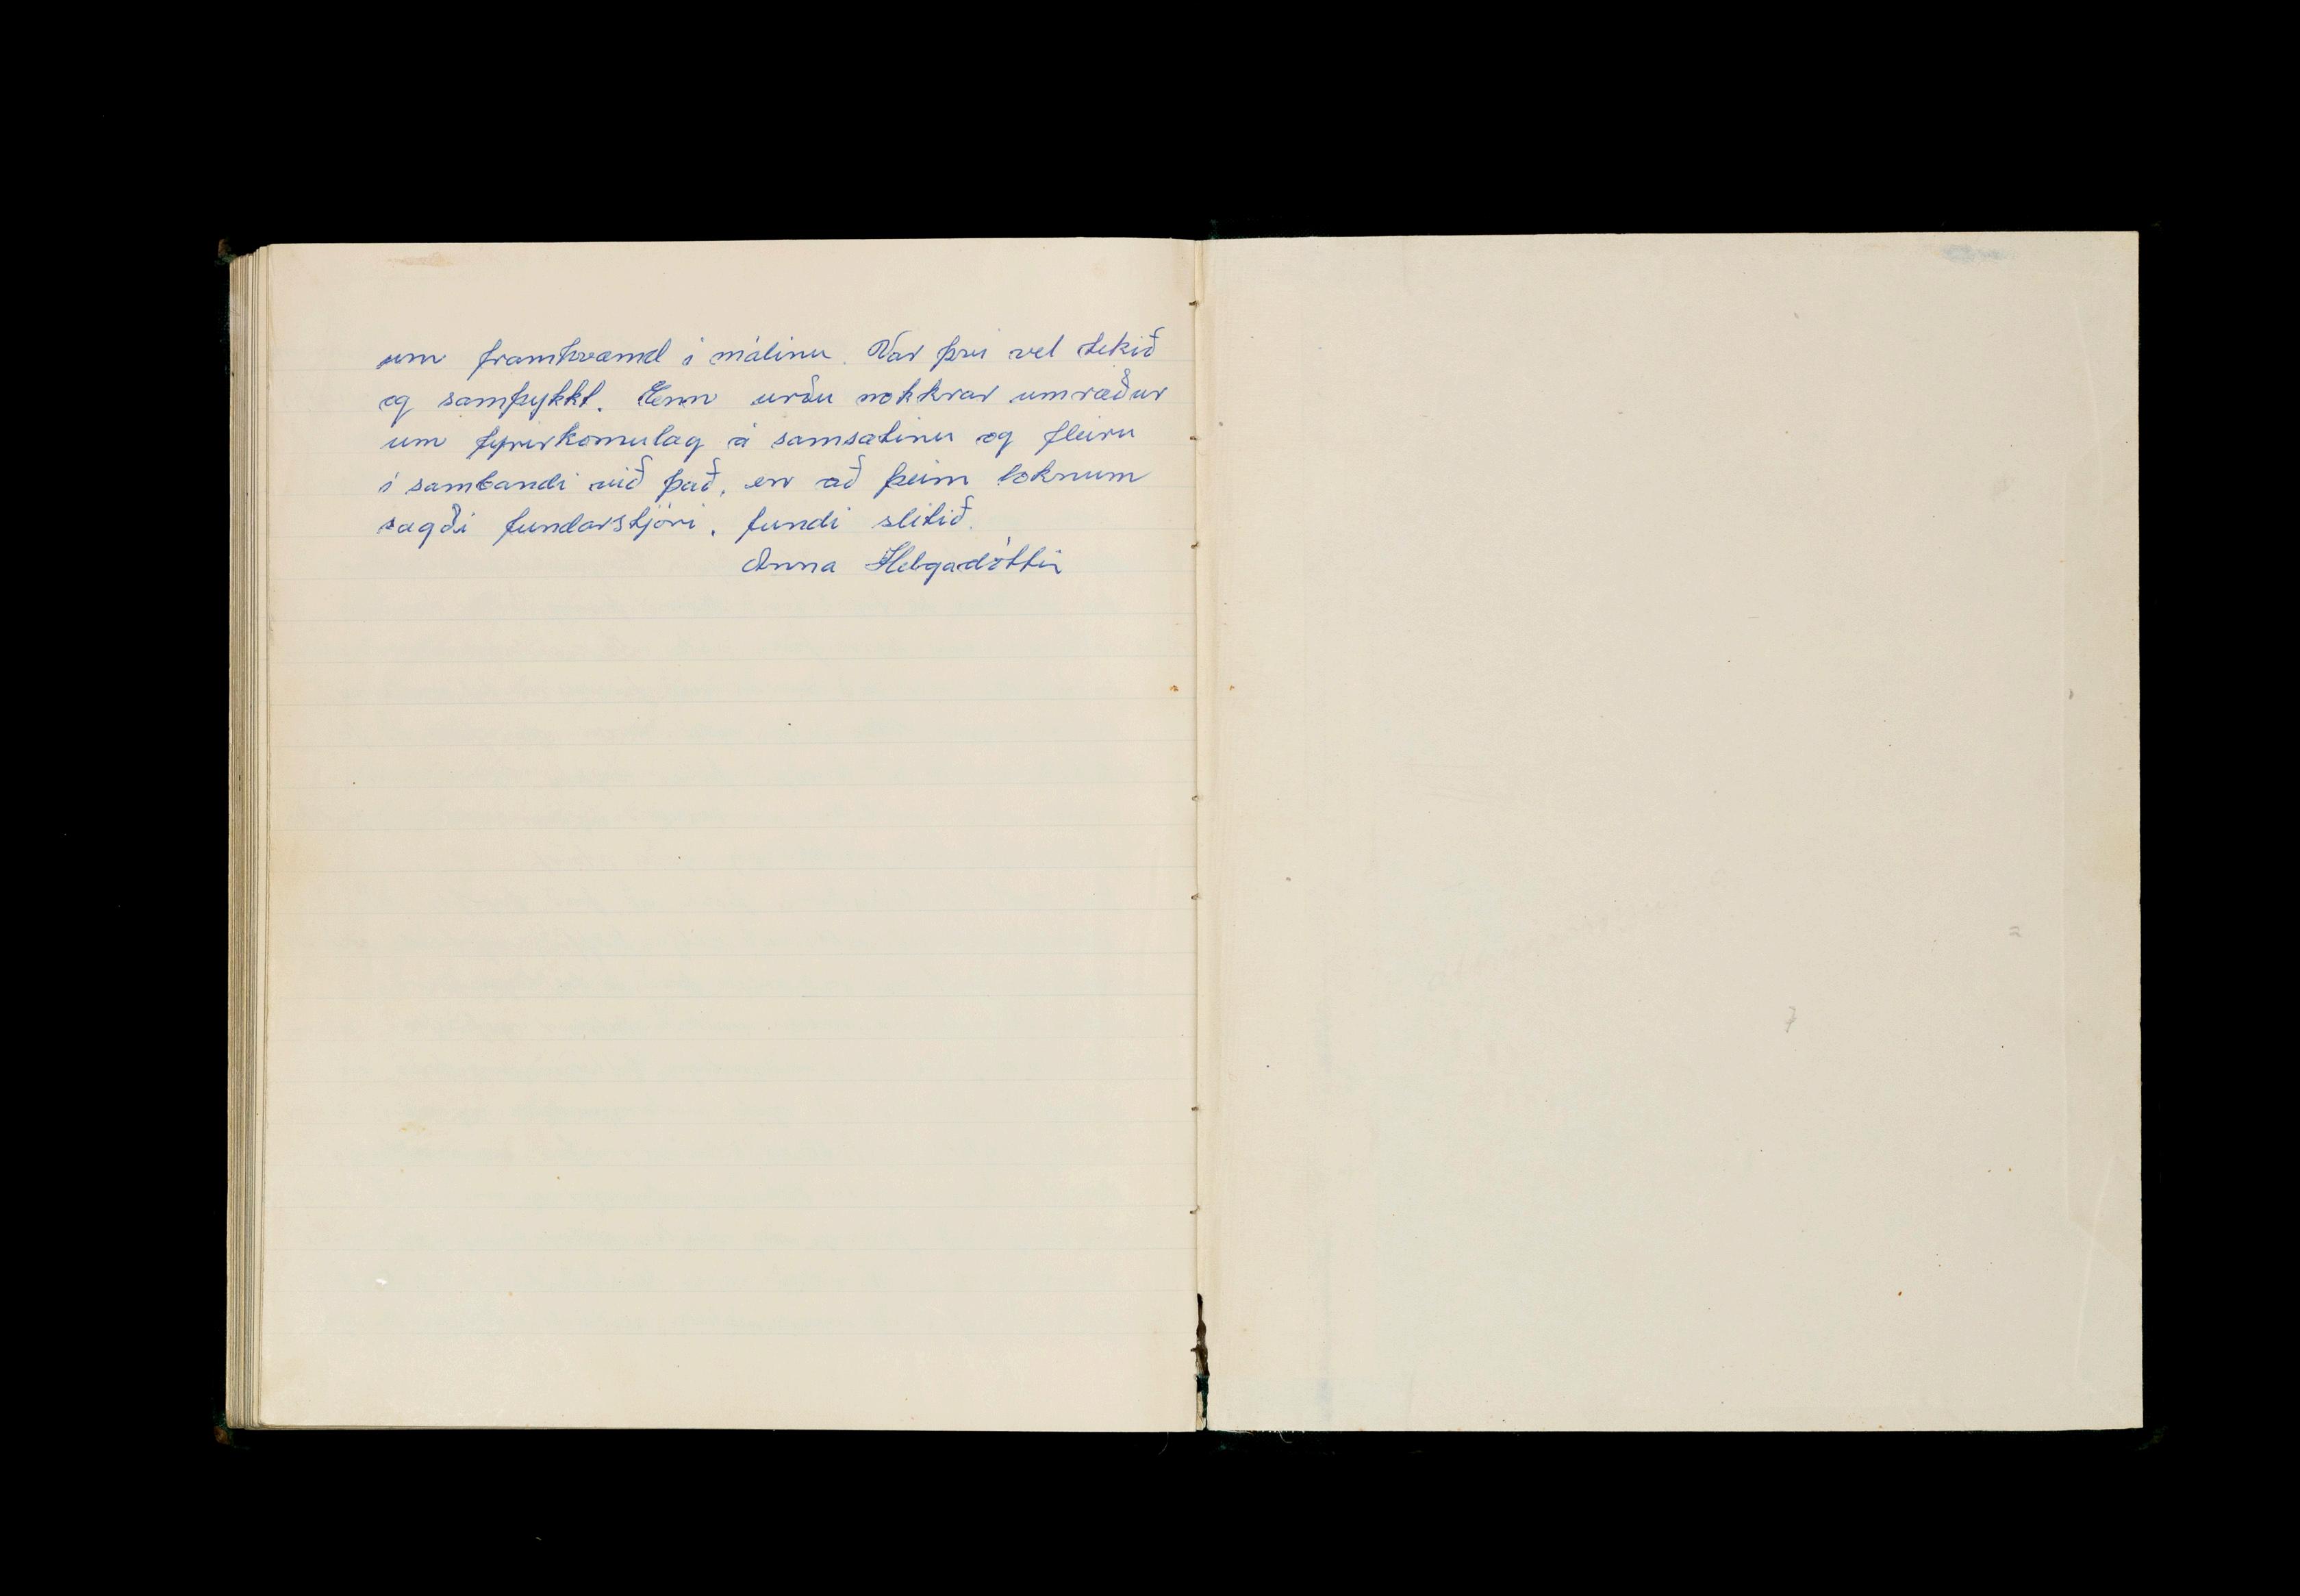 um framkvæmd í málinu. Var því vel tekið
og samþykkt. Enn urðu nokkrar umræður
um fyrirkomulag á samsætinu og fleiru
í sambandi við það, en að þeim loknum
sagði fundarstjóri, fundi slitið.
Anna Helgadóttir